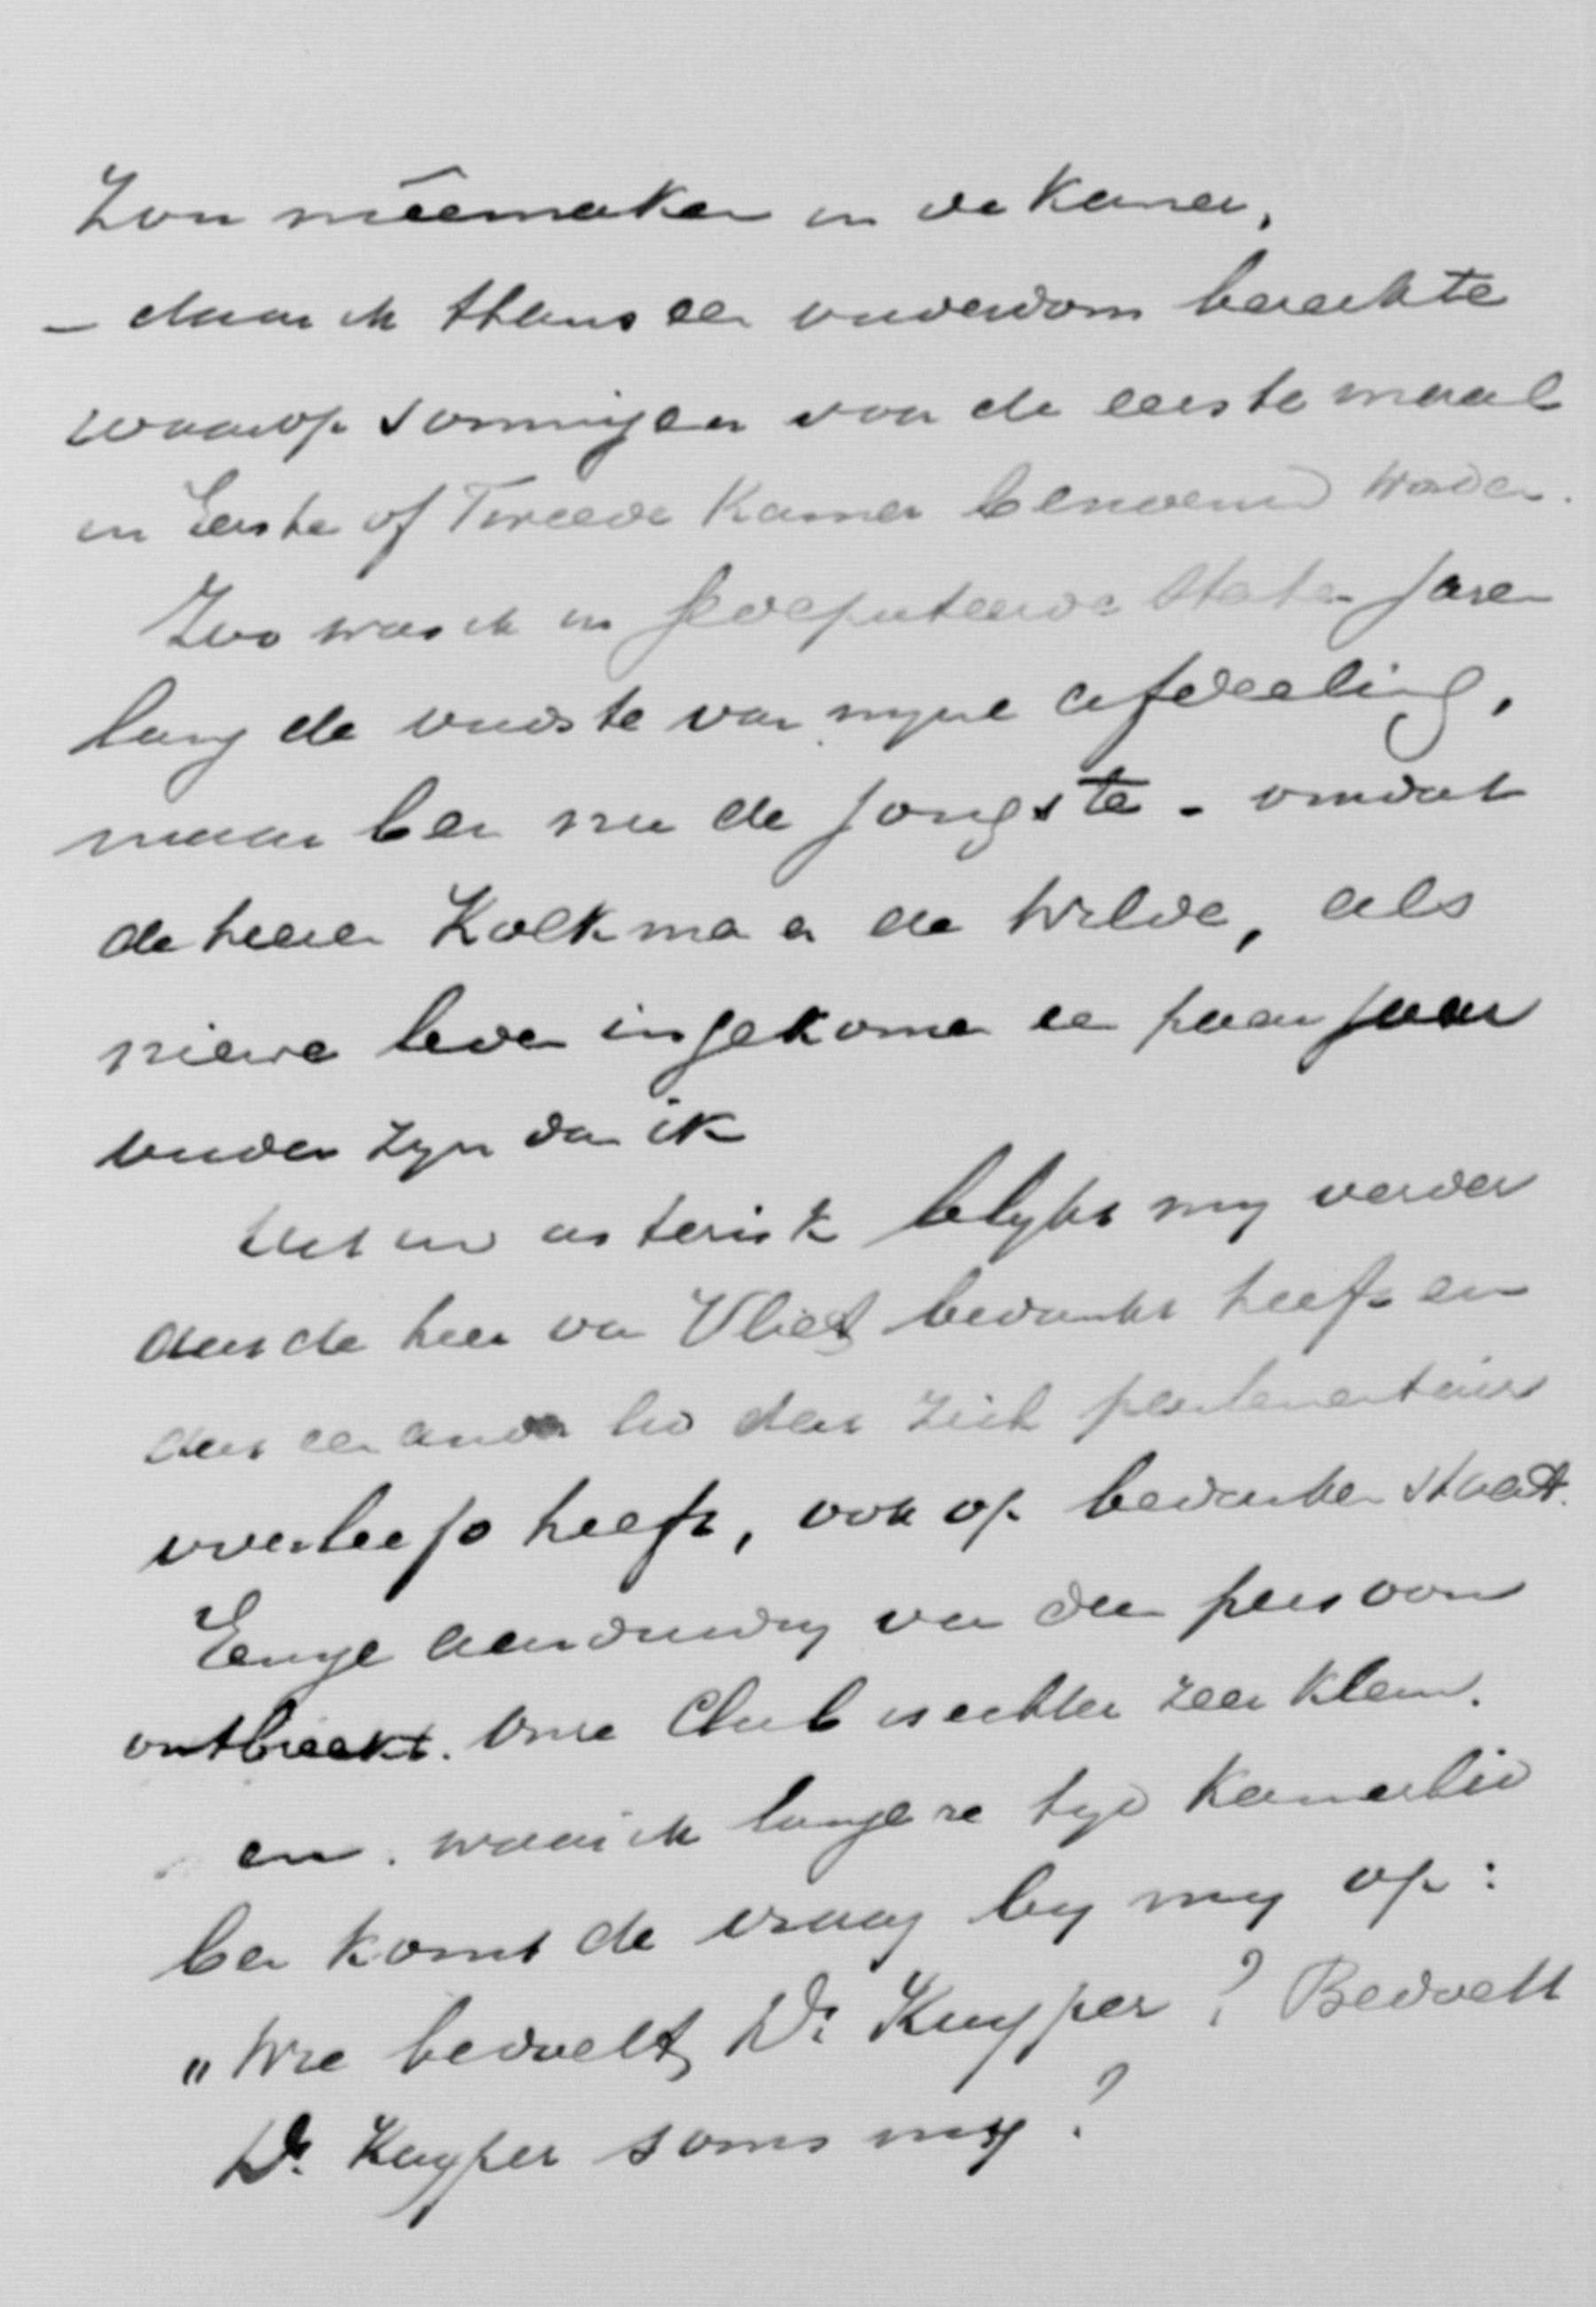 Zou meêmaken in de Kamer,
– daar ik thans een ouderdom bereikte
waarop sommigen voor de eerste maal
in Eerste of Tweede Kamer benoemd worden.
Zoo was ik in Gedeputeerde Staten jaren
lang de oudste van myne afdeeling,
maar ben nu de jongste – omdat
de heeren Kolkma en de Wilde, als
nieuwe leden ingekomen een paar jaar
ouder zyn dan ik
Uit uw asterisk blykt my verder
dat de heer van Vliet bedankt heeft en
dat een ander lid dat zich parlementair
overleefd heeft, ook op bedanken staat.
Eenige aanduiding van dien persoon
ontbreekt. Onze Club is echter zeer klein.
en. waar ik langere tyd Kamerlid
ben komt de vraag by my op:
„Wie bedoelt Dr. Kuyper? Bedoelt
Dr. Kuyper soms my?